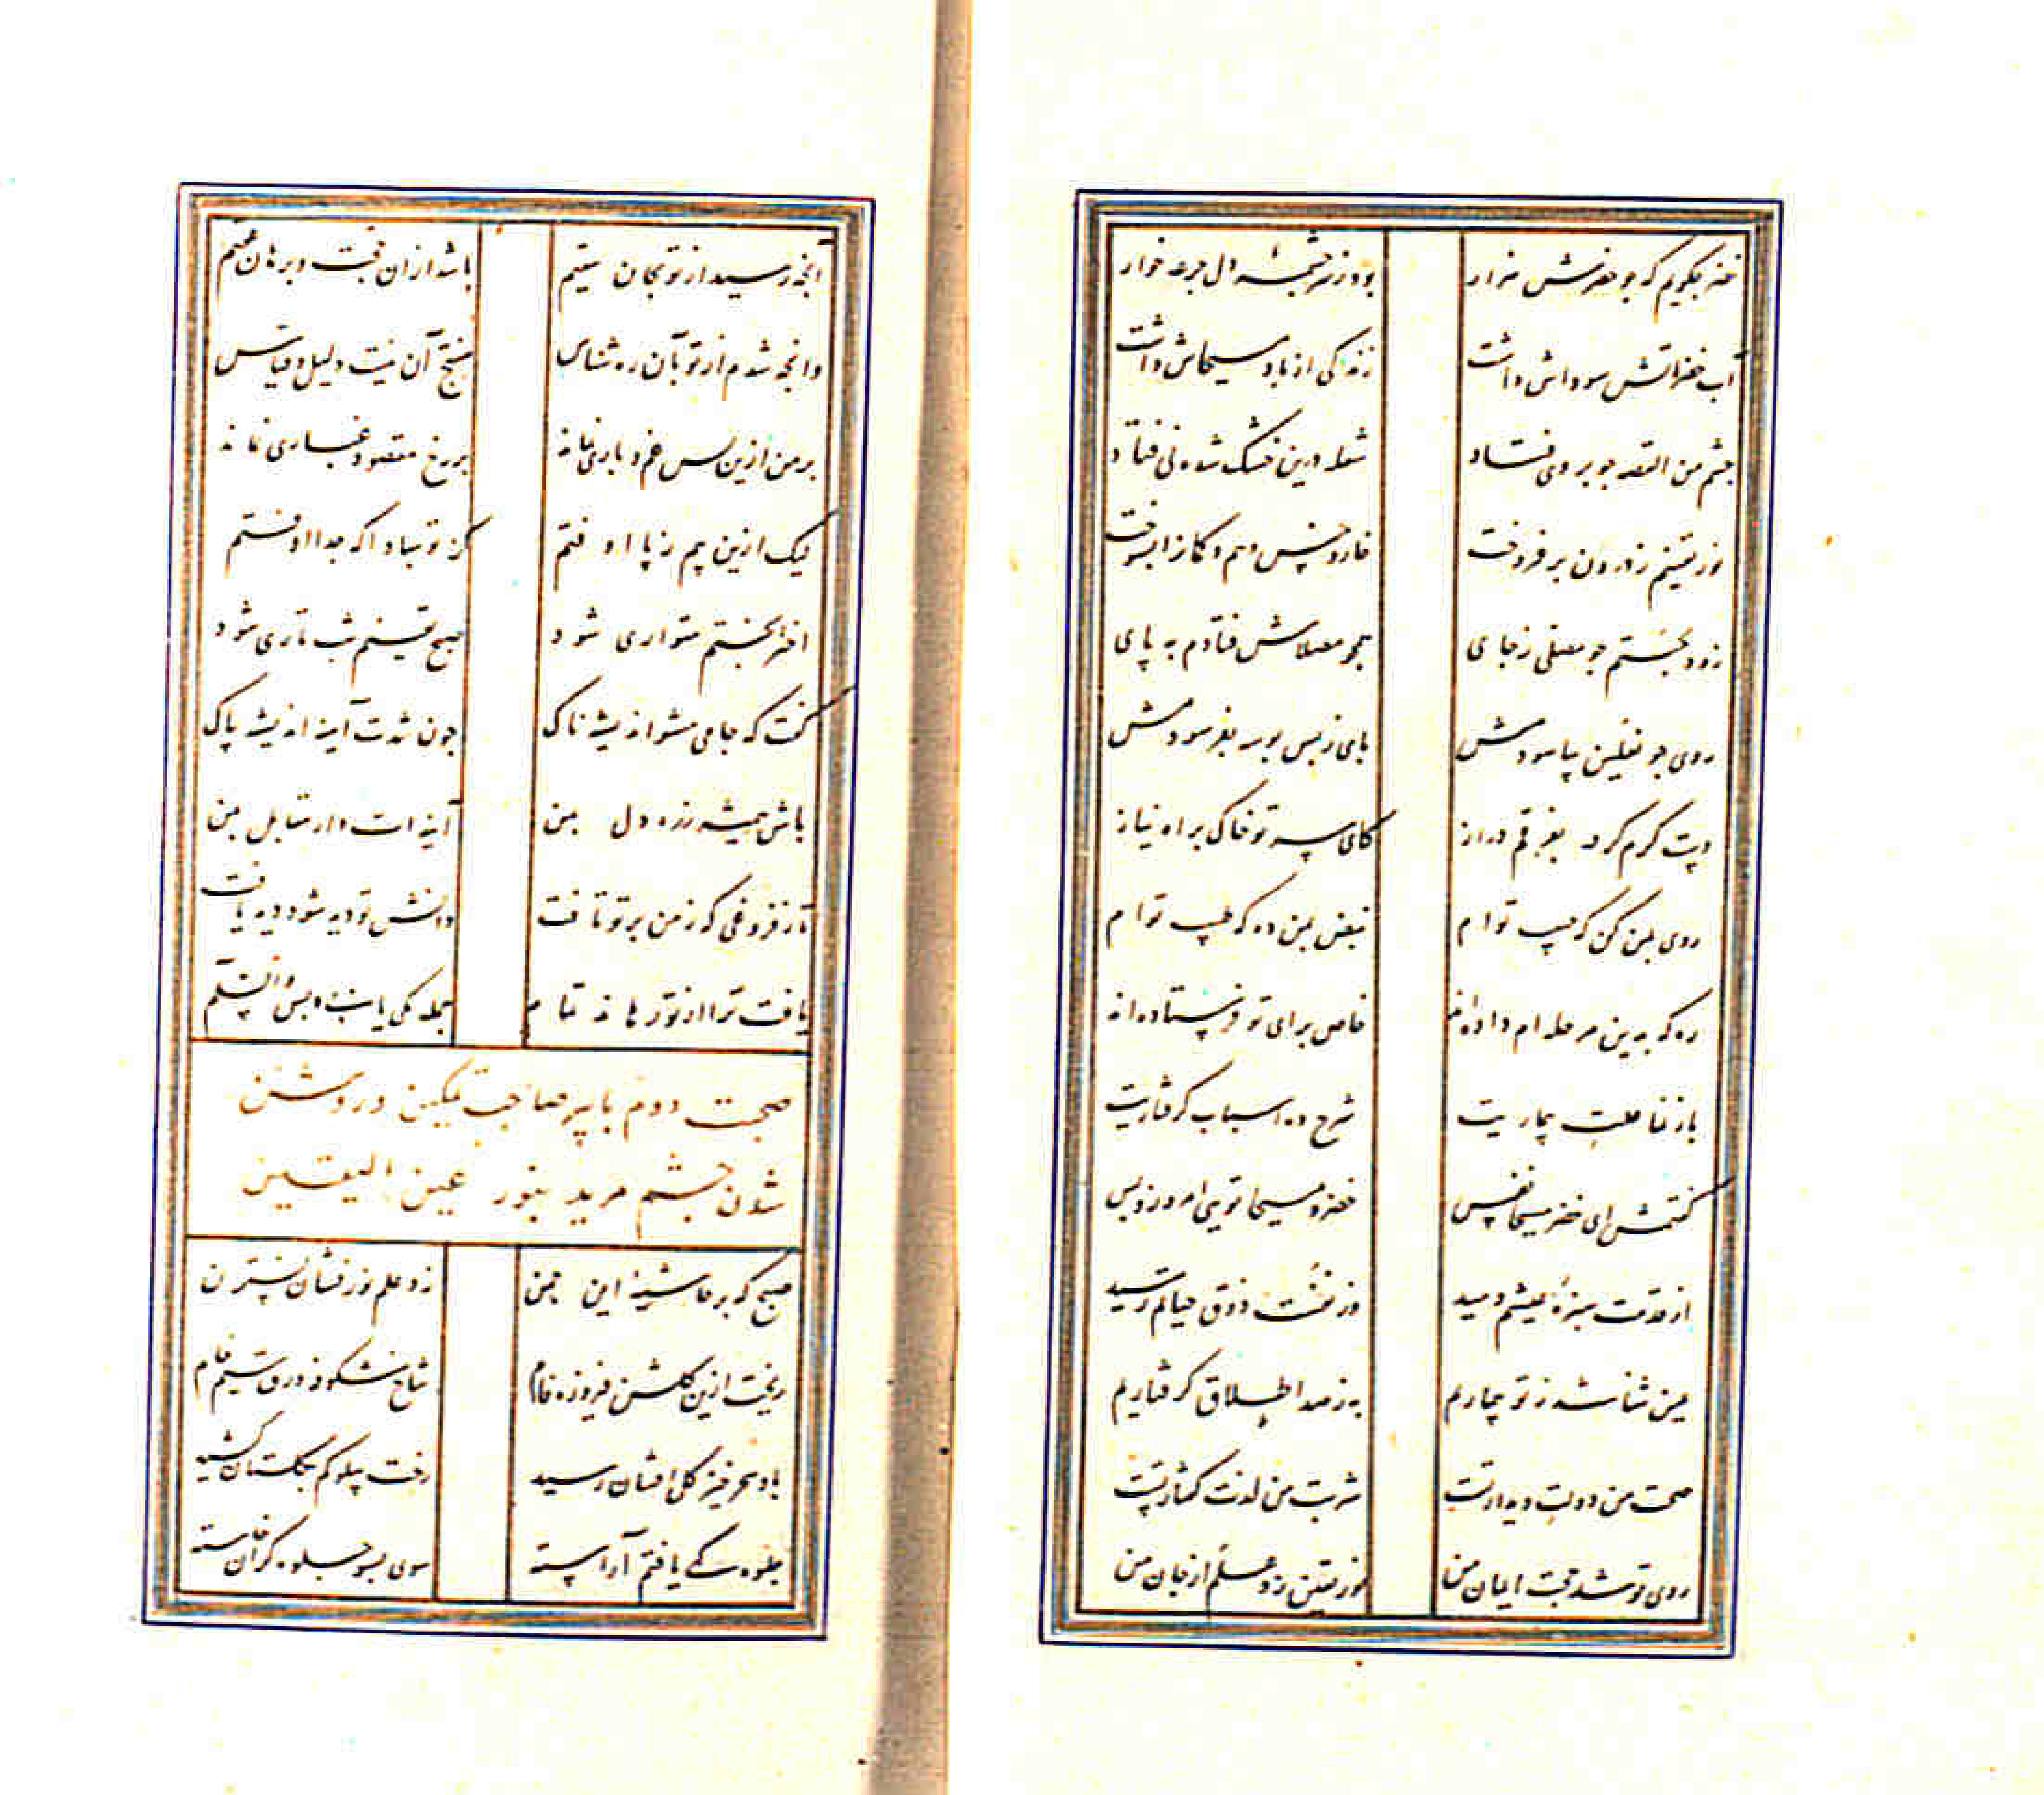 خضر چکویم که جو خضرش هزار بود ز سرچشمهٔ دل جرعه خوار
آب خضر آتش سوداش داشت زندکی از باد مسیحاش داشت
چشم من القصه جو بر وی فتاد شعله درین خشک شده نی فتاد
نور یقینم ز درون بر فروخت خار و خس وهم و کمانرا بسوخت
زود بجستم جو مصلی ز جای همچو مصلاش فتادم به پای
روی جو نعلین بپا سودمش پای ز بس بوسه بفرسودمش
دست کرم کرد بفرقم دراز کای سر تو خاک براه نیاز
روی بمن کن که حبیب توام نبض بمن ده که طبیب توام
ره که بدین مرحله ام داده اند خاص برای تو فرستاده اند
باز نما علت بیماریت شرح ده اسباب کرفتاریت
کفتمش ای خضر مسیحا نفس خضر و مسیحا تویی امروز و بس
از قدمت سبزهٔ عیشم دمید وز نفست ذوق حیاتم رسید
عین شفا شد ز تو بیماریم به ز صد اطلاق کرفتاریم
صحت من دولت دیدار تست شربت من لذت کفتار تست
روی تو شد حجت ایمان من نور یقین زد علم از جان من
آنچه رسید از تو بجان سقیم باشد از آن حجت و برهان عقیم
وانچه شدم از تو بآن ره شناس منتج آن نیست دلیل و قیاس
بر من ازین پس غم و باری نماند بر رخ مقصود غباری نماند
لیک ازین بیم ز پا اوفتم کز تو مبادا که جدا اوفتم
اختر بختم متواری شود صبح یقینم شب تاری شود
کفت که جامی مشو اندیشه ناک جون شدت آیینه اندیشه پاک
باش همیشه ز ره دل بمن آینه ات دار مقابل بمن
تا ز فروغی که ز من بر تو تافت دانش تو دیده شود دیده یافت
یافت ترا از تو رهاند تمام جمله یکی یابی و بس والسلام
صحبت دوم با پیر صاحب تمکین در روشن
شدن چشم مرید بنور عین الیقین
صبح که بر حاشیهٔ این چمن زد علم نور فشان نسترن
ریخت ازین کلشن فیروزه فام شاخ شکوفه ورق سیم خام
باد سحر خیز کل افشان رسید رخت بپلوکم بکلستان کشید
جلوه کهی یافتم آراسته سوی بسو جلوه کران خاسته